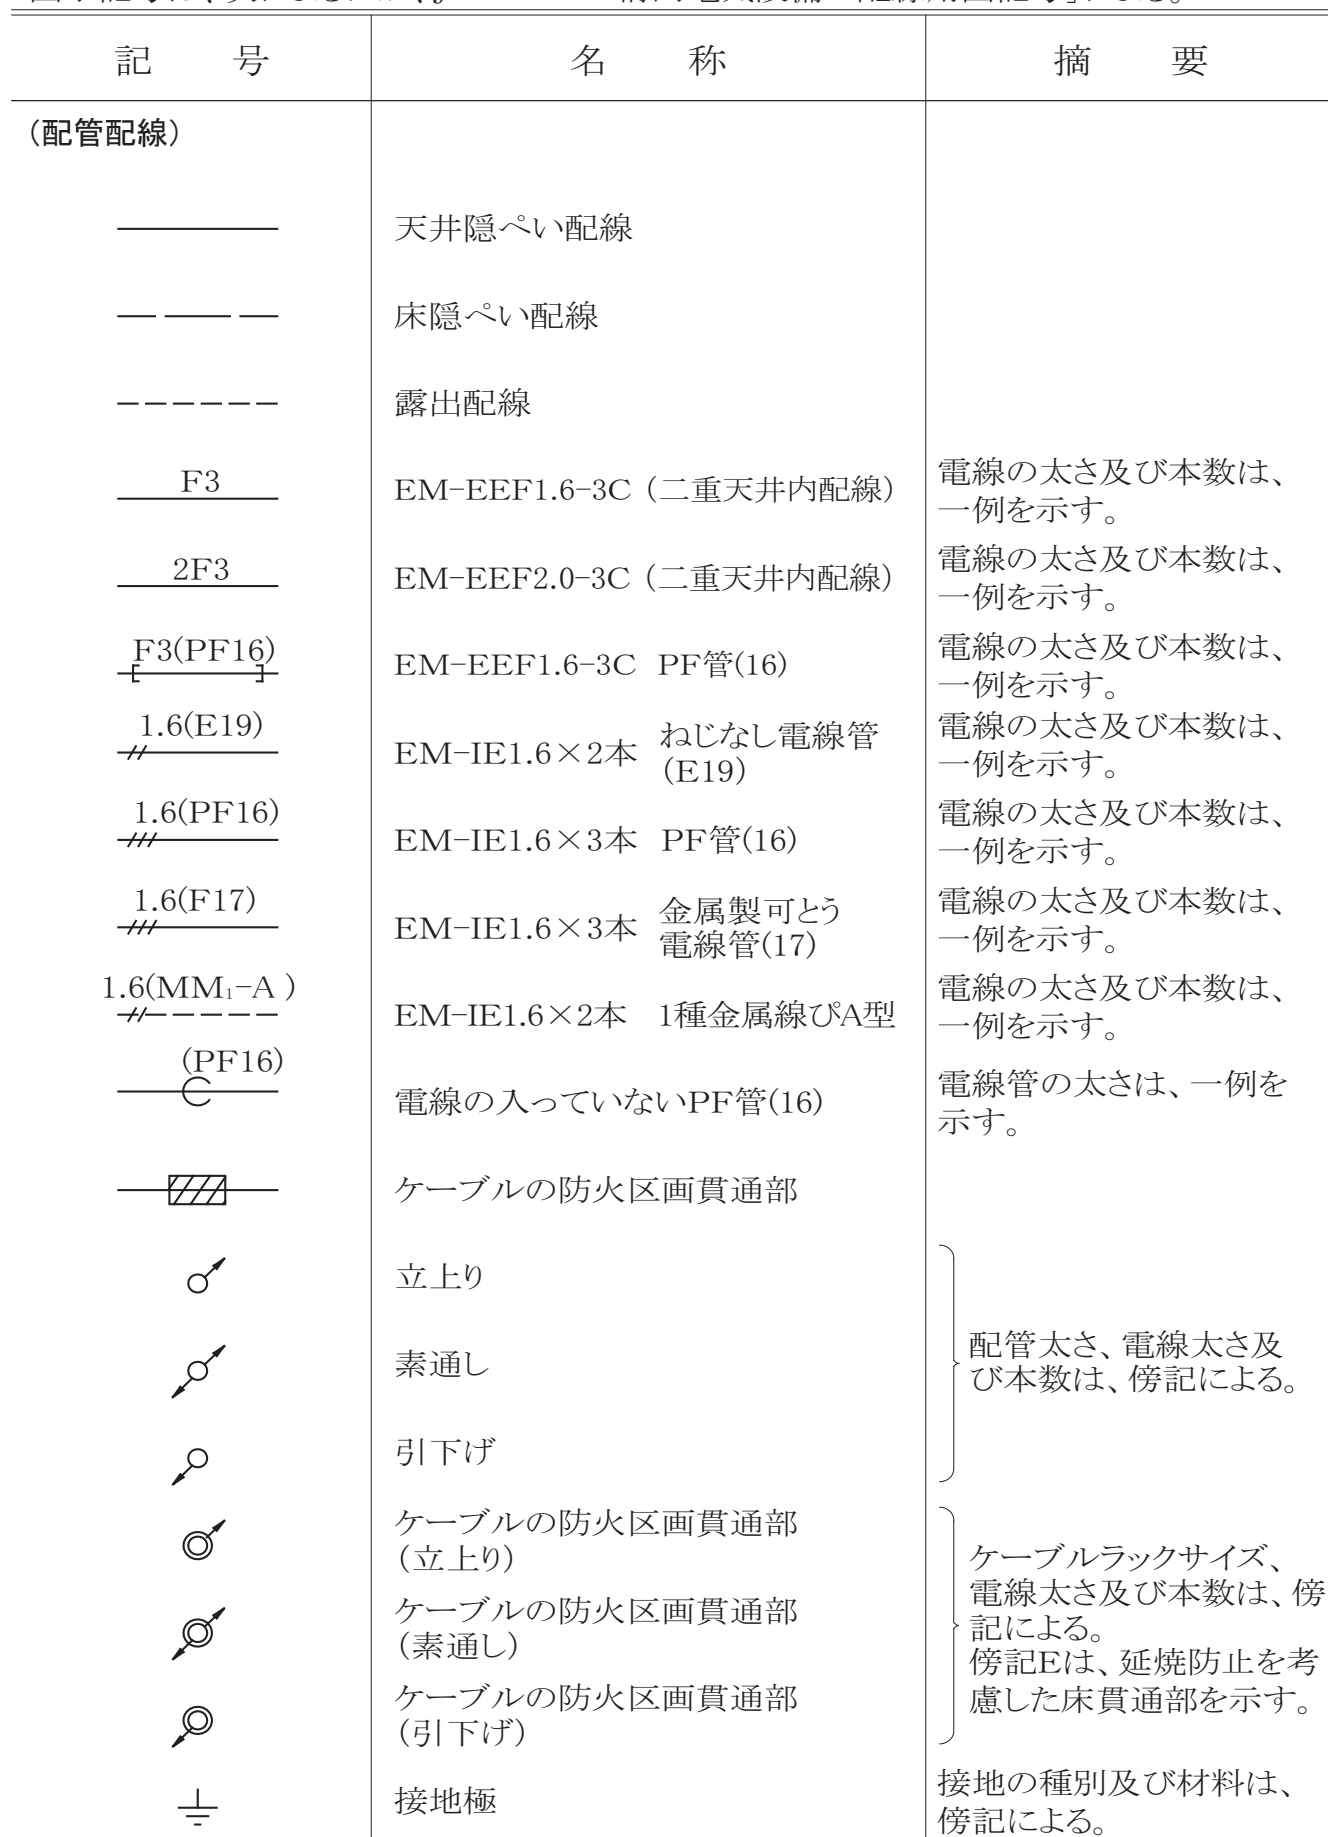 記号 名称 摘要
(配管配線)
天井隠ぺい配線
床隠ぺい配線
露出配線
F3 EM-EEF1.6-3C (二重天井内配線) 電線の太さ及び本数は、
一例を示す。
2F3 EM-EEF2.0-3C (二重天井内配線) 電線の太さ及び本数は、
一例を示す。
F3(PF16) EM-EEF1.6-3C PF管(16) 電線の太さ及び本数は、
一例を示す。
1.6(E19) EM-IE1.6×2本 ねじなし電線管 電線の太さ及び本数は、
(E19) 一例を示す。
1.6(PF16) EM-IE1.6×3本 PF管(16) 電線の太さ及び本数は、
一例を示す。
1.6(F17) EM-IE1.6×3本 金属製可とう 電線の太さ及び本数は、
電線管(17) 一例を示す。
1.6(MM₁-A) EM-IE1.6×2本 1種金属線ぴA型 電線の太さ及び本数は、
一例を示す。
(PF16) 電線の入っていないPF管(16) 電線管の太さは、一例を
示す。
ケーブルの防火区画貫通部
立上り
素通し
引下げ
配管太さ、電線太さ及
び本数は、傍記による。
ケーブルの防火区画貫通部
(立上り)
ケーブルの防火区画貫通部
(素通し)
ケーブルの防火区画貫通部
(引下げ)
ケーブルラックサイズ、
電線太さ及び本数は、傍
記による。
傍記Eは、延焼防止を考
慮した床貫通部を示す。
接地極 接地の種別及び材料は、
傍記による。